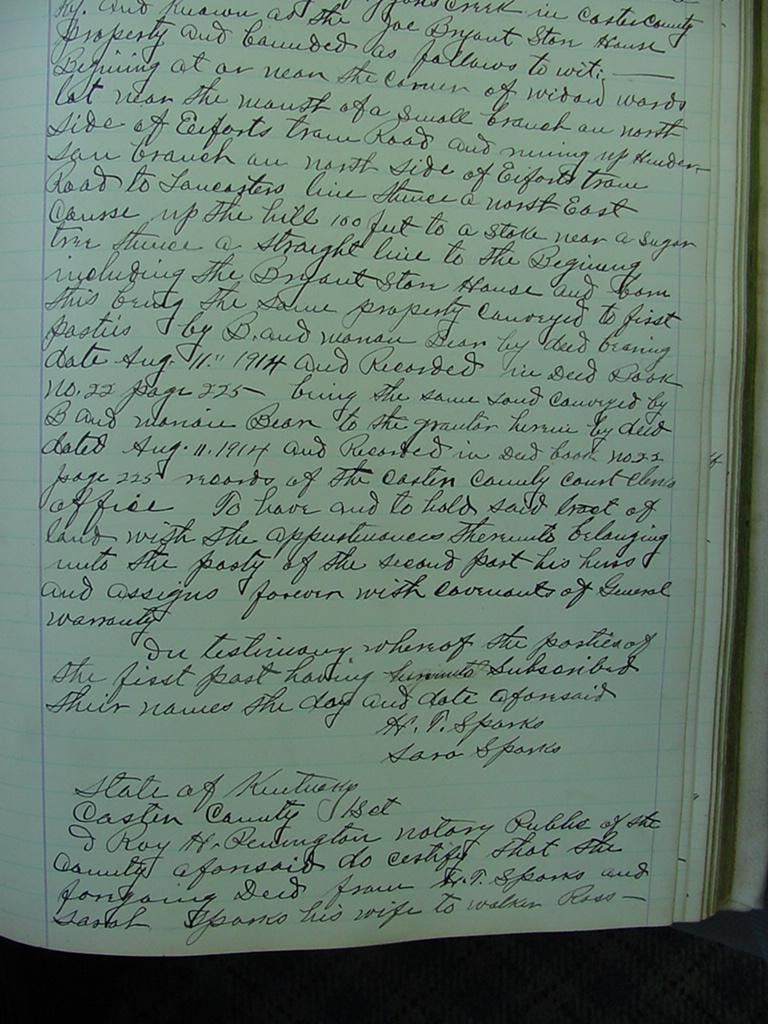 Ky. and Known as the Tygarts Creek in Carter County
property and bounded as follows to wit;
Begining at or near the corner of widow wards
lot near the mouth of a small branch on north
side of Eiforts tram Road and runing up Hender-
son branch on north side of Eiforts tram
Road to Lancasters line thence a north East
Course up the hill 100 feet to a stake near a sugar
tree thence a straight line to the Begining
including the Bryant Store House and barn
this being the same property conveyed to first
parties by B. and Bean by deed bearing
date Aug. 11." 1914 and Recorded in Deed Book
No. 22 page 225 - being the same land conveyed by
B and Bean to the grantor herein by deed
dated Aug. 11. 1914 and Recorded in Deed book no. 22
page 225 records of the Carter County Court Clerks
office To have and to hold said tract of
land with the appurtenances thereunto belonging
unto the party of the second part his heirs
and assigns forever with covenants of General
warranty
In testimony whereof the parties of
the first part having hereunto Subscribed
their names the day and date aforesaid
H. T. Sparks
Sara Sparks
State of Kentucky
Carter County Sct
I Roy H. Penington notary Public of the
County aforesaid do certify that the
forgoing Deed from H. T. Sparks and
Sarah Sparks his wife to Walker Ross